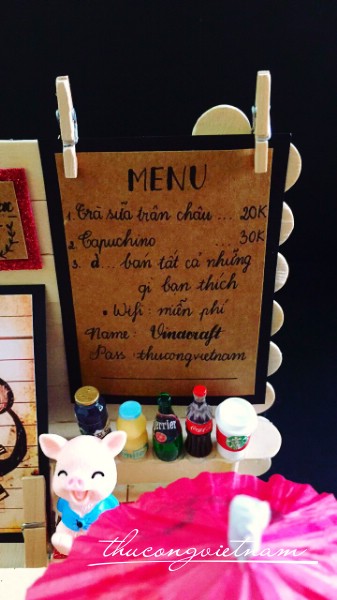 MENU
1. Trà sữa trân châu ... 20K
2. Capuchino ... 30K
3. d... bán tất cả những
gì bạn thích
• Wifi: miễn phí
Name: Vinacraft
Pass: thucongvietnam
thucongvietnam